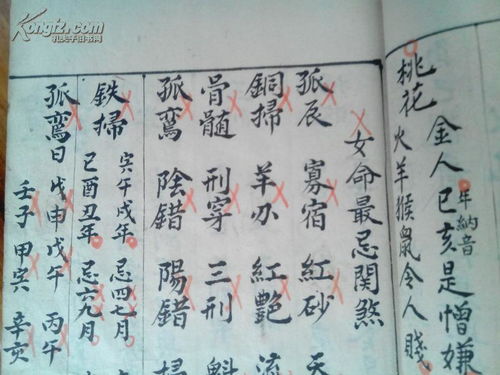 Kongfz.com
孔夫子旧书网
桃花 火羊猴鼠令人賤
金人巳亥是憎嫌
年納音
女命最忌関煞
孤辰 寡宿 紅砂 天
銅掃 羊刃 紅艷 流
骨髄 刑穿 三刑 魁
孤鸞 陰錯 陽錯 掃
鉄掃 寅午戌年忌四七月
巳酉丑年忌六九月
孤鸞日 戊申 戊午 丙午
壬子 甲寅 辛亥